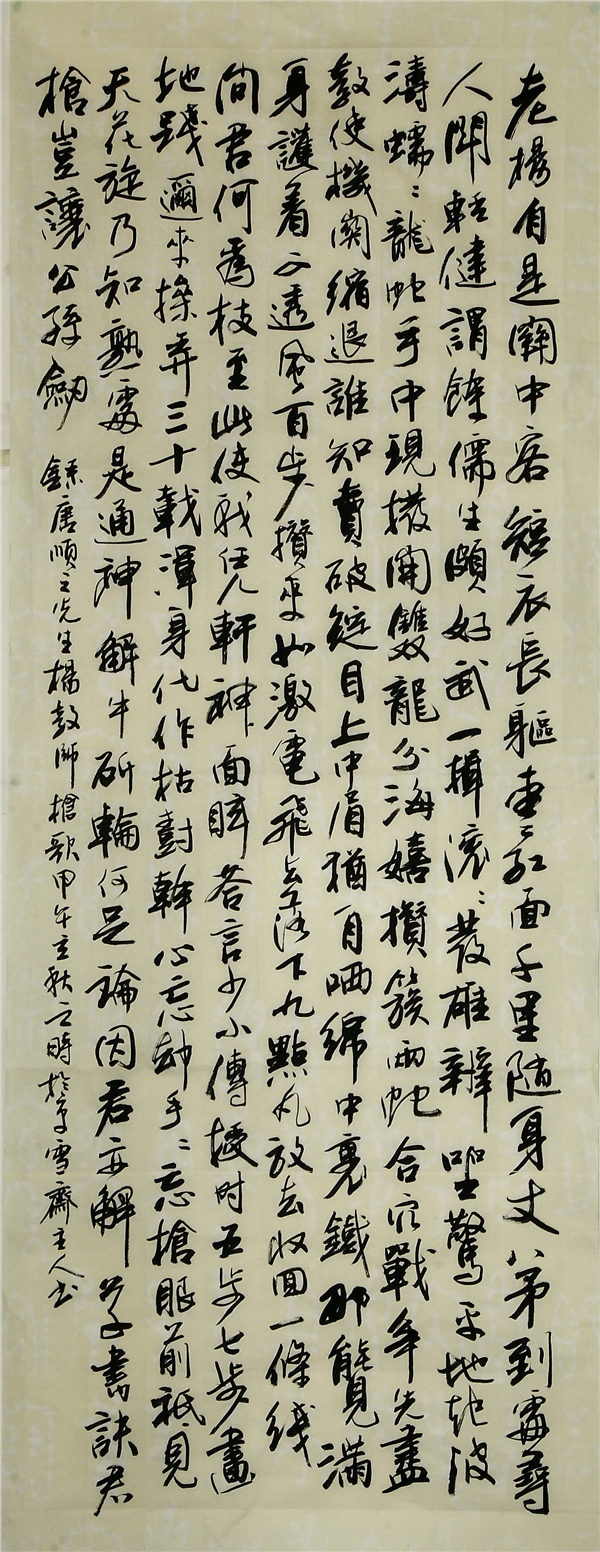 老楊自是關中客短衣長軀枣紅面千里隨身丈八矛到處尋
人鬥輕健謂餘儒生頗好武一揖滾滾發雄辯坐驚平地起波
濤蠕蠕龍蛇手中現撥開雙龍分海嬉攢簇兩蛇合穴戰爭先盡
教使機關縮退誰知賣破綻目上中眉猶自哂綿中裹鐵那能見滿
身護着不透風百步攢來如激電飛上落下九點丸放去收囬一條綫
問君何爲技至此使我任几軒神面眩荅言少小傳授時五步七步畫
地踐邇來操弄三十載渾身化作枯樹幹心忘卻手手忘槍眼前衹見
天花旋乃知熟處是通神解牛斫輪何足論因君亦解草書訣君
槍豈讓公孫劍 錄唐順之先生楊教師槍歌甲午立秋之時於享雪齋主人书